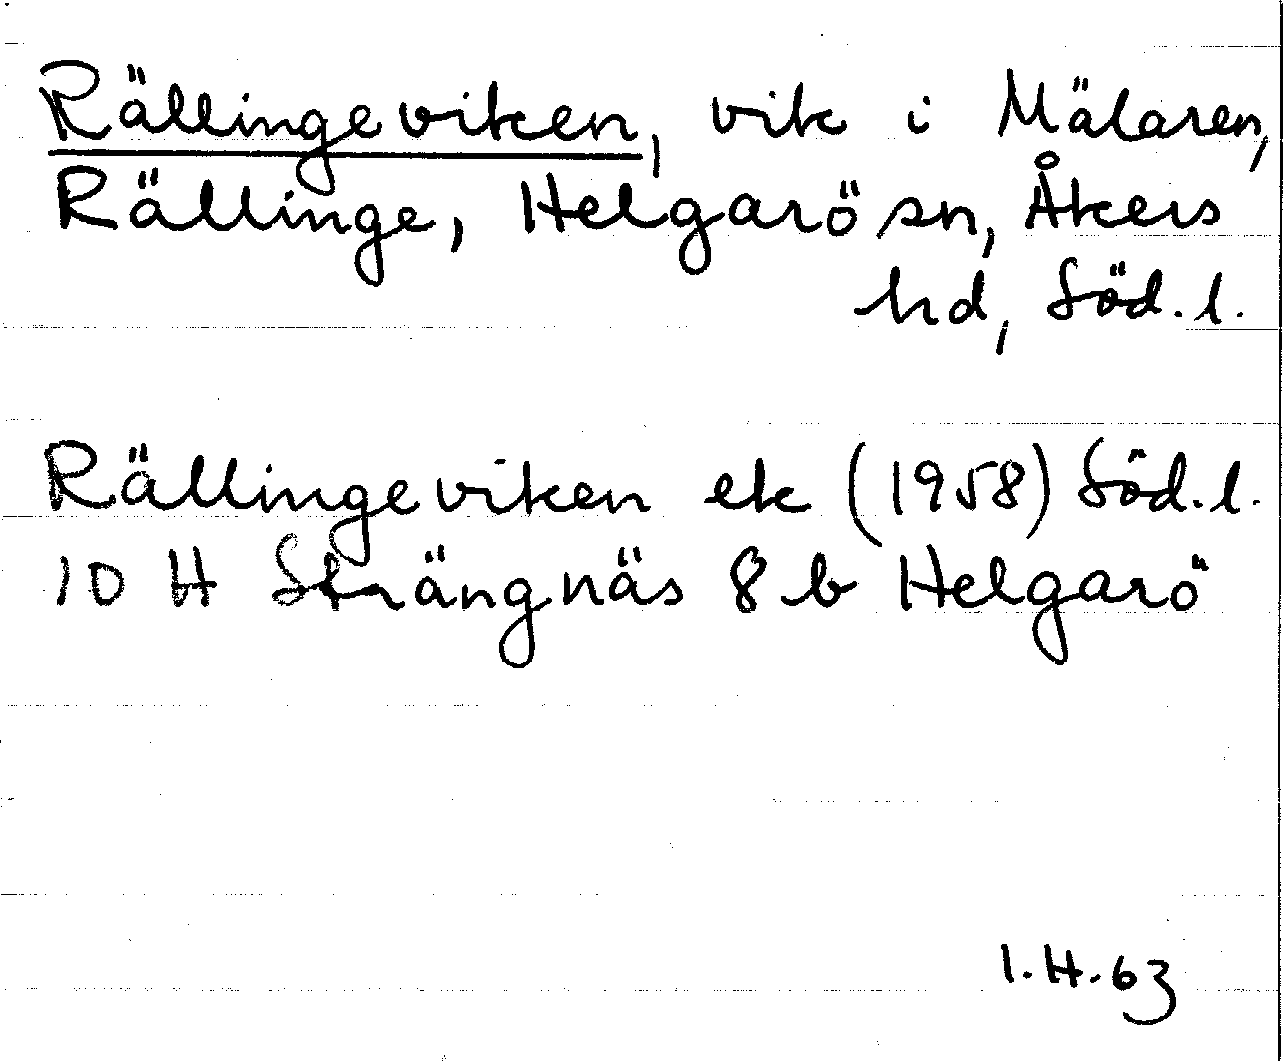 Rällingeviken, vik i Mälaren,
Rällinge, Helgarö sn, Åkers
hd, Söd.l.
Rällingeviken ek (1958) Söd.l.
10 H Strängnäs 8 b Helgarö
I.H.63